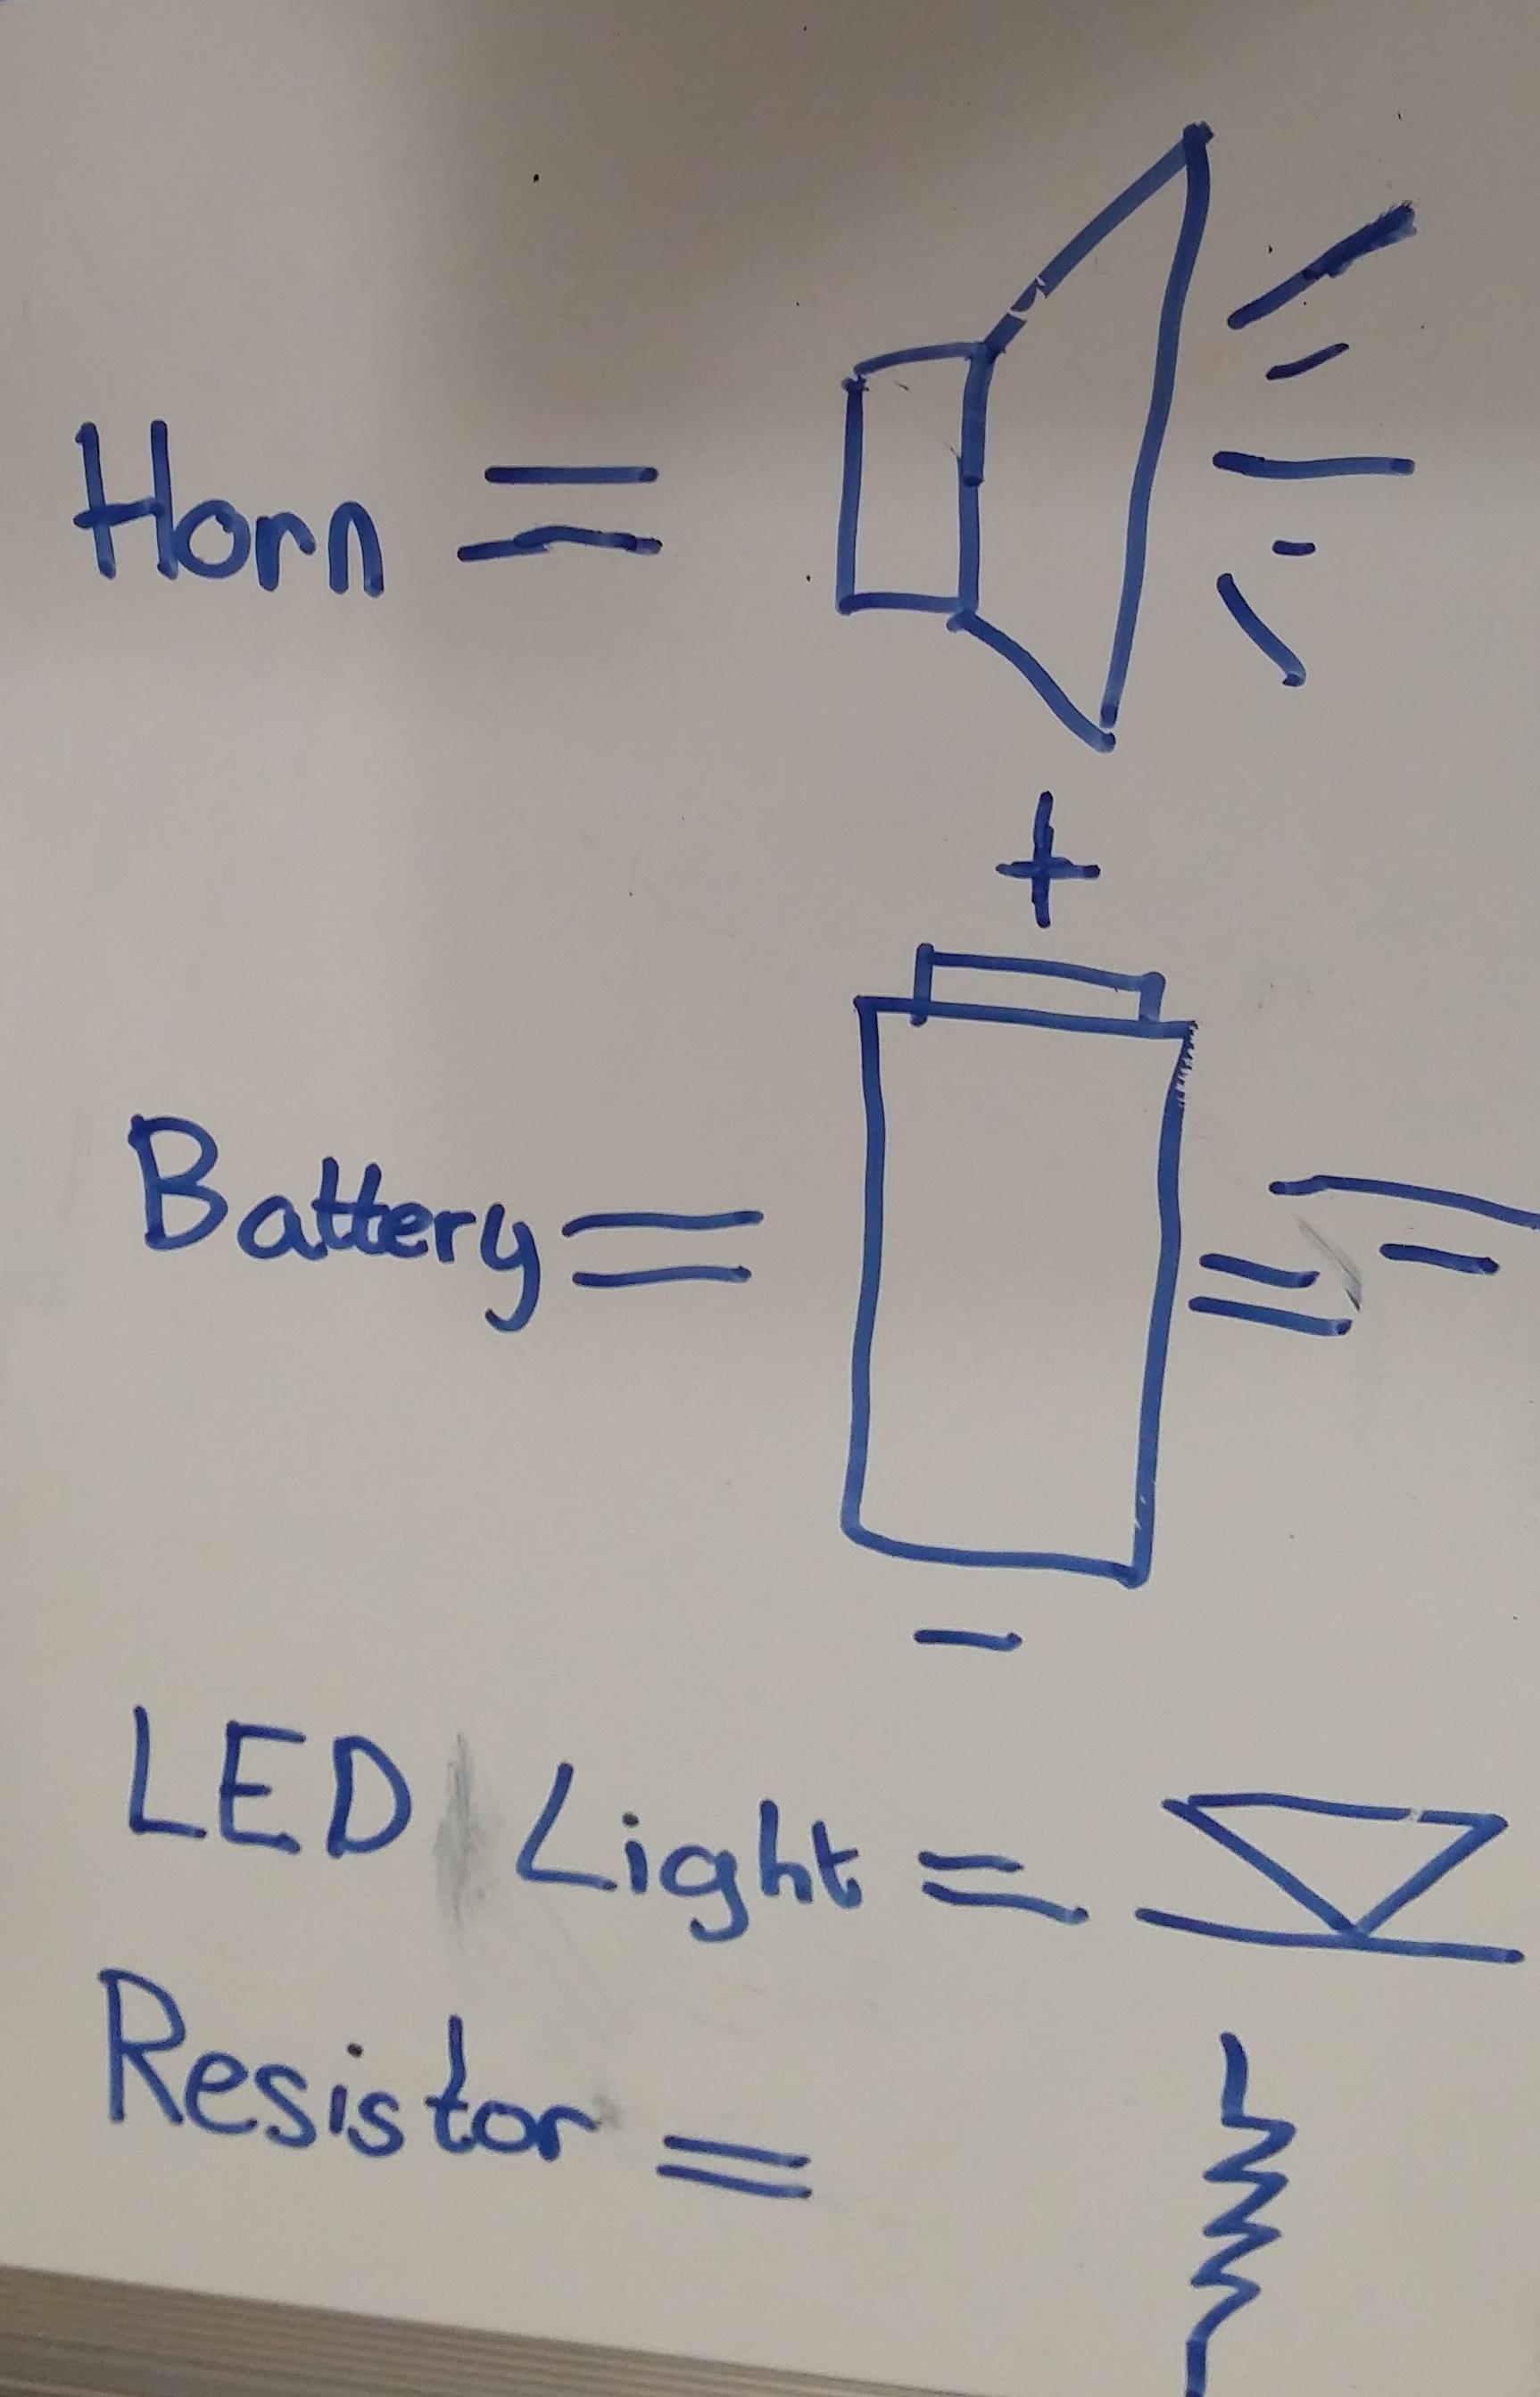 Horn =
+
Battery = =
-
LED Light =
Resistor =